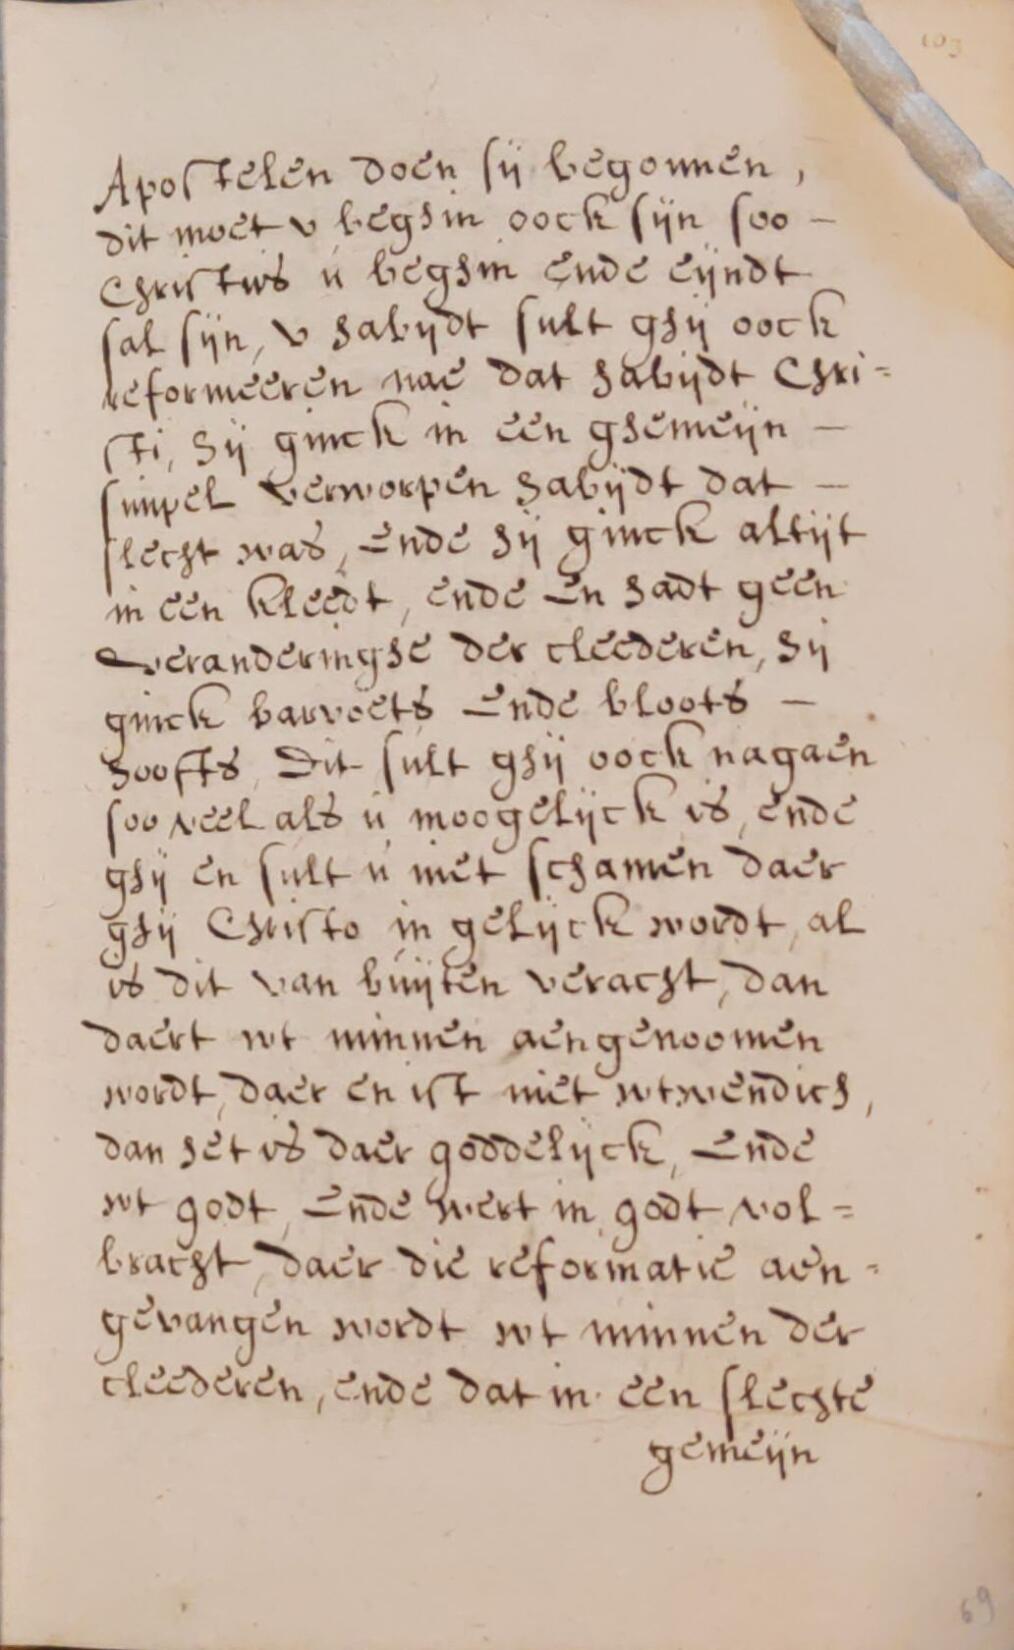 103
Apostelen doen sij begonnen,
dit moet v beghin oock sijn soo –
Christus ú beghin ende eijndt
sal sijn, v habijdt sult ghij oock
reformeeren nae dat habijdt Chri=
sti, hij ginck in een ghemeijn –
simpel verworpen habijdt dat –
slecht was, ende hij ginck altijt
in een kleedt, ende en hadt geen
veranderinghe der cleederen, hij
ginck barvoets ende bloots –
hoofts, Dit sult ghij oock nagaen
soo veel als ú moogelijck is, ende
ghij en sult ú niet schamen daer
ghij Christo in gelijck wordt, al
is dit van buijten veracht, dan
daert wt minnen aengenoomen
wordt, daer en ist niet wtwendich,
dan het is daer goddelijck, ende
wt godt, ende wert in godt vol=
bracht, daer die reformatie aen=
gevangen wordt wt minnen der
cleederen, ende dat in een slechte
gemeijn
69